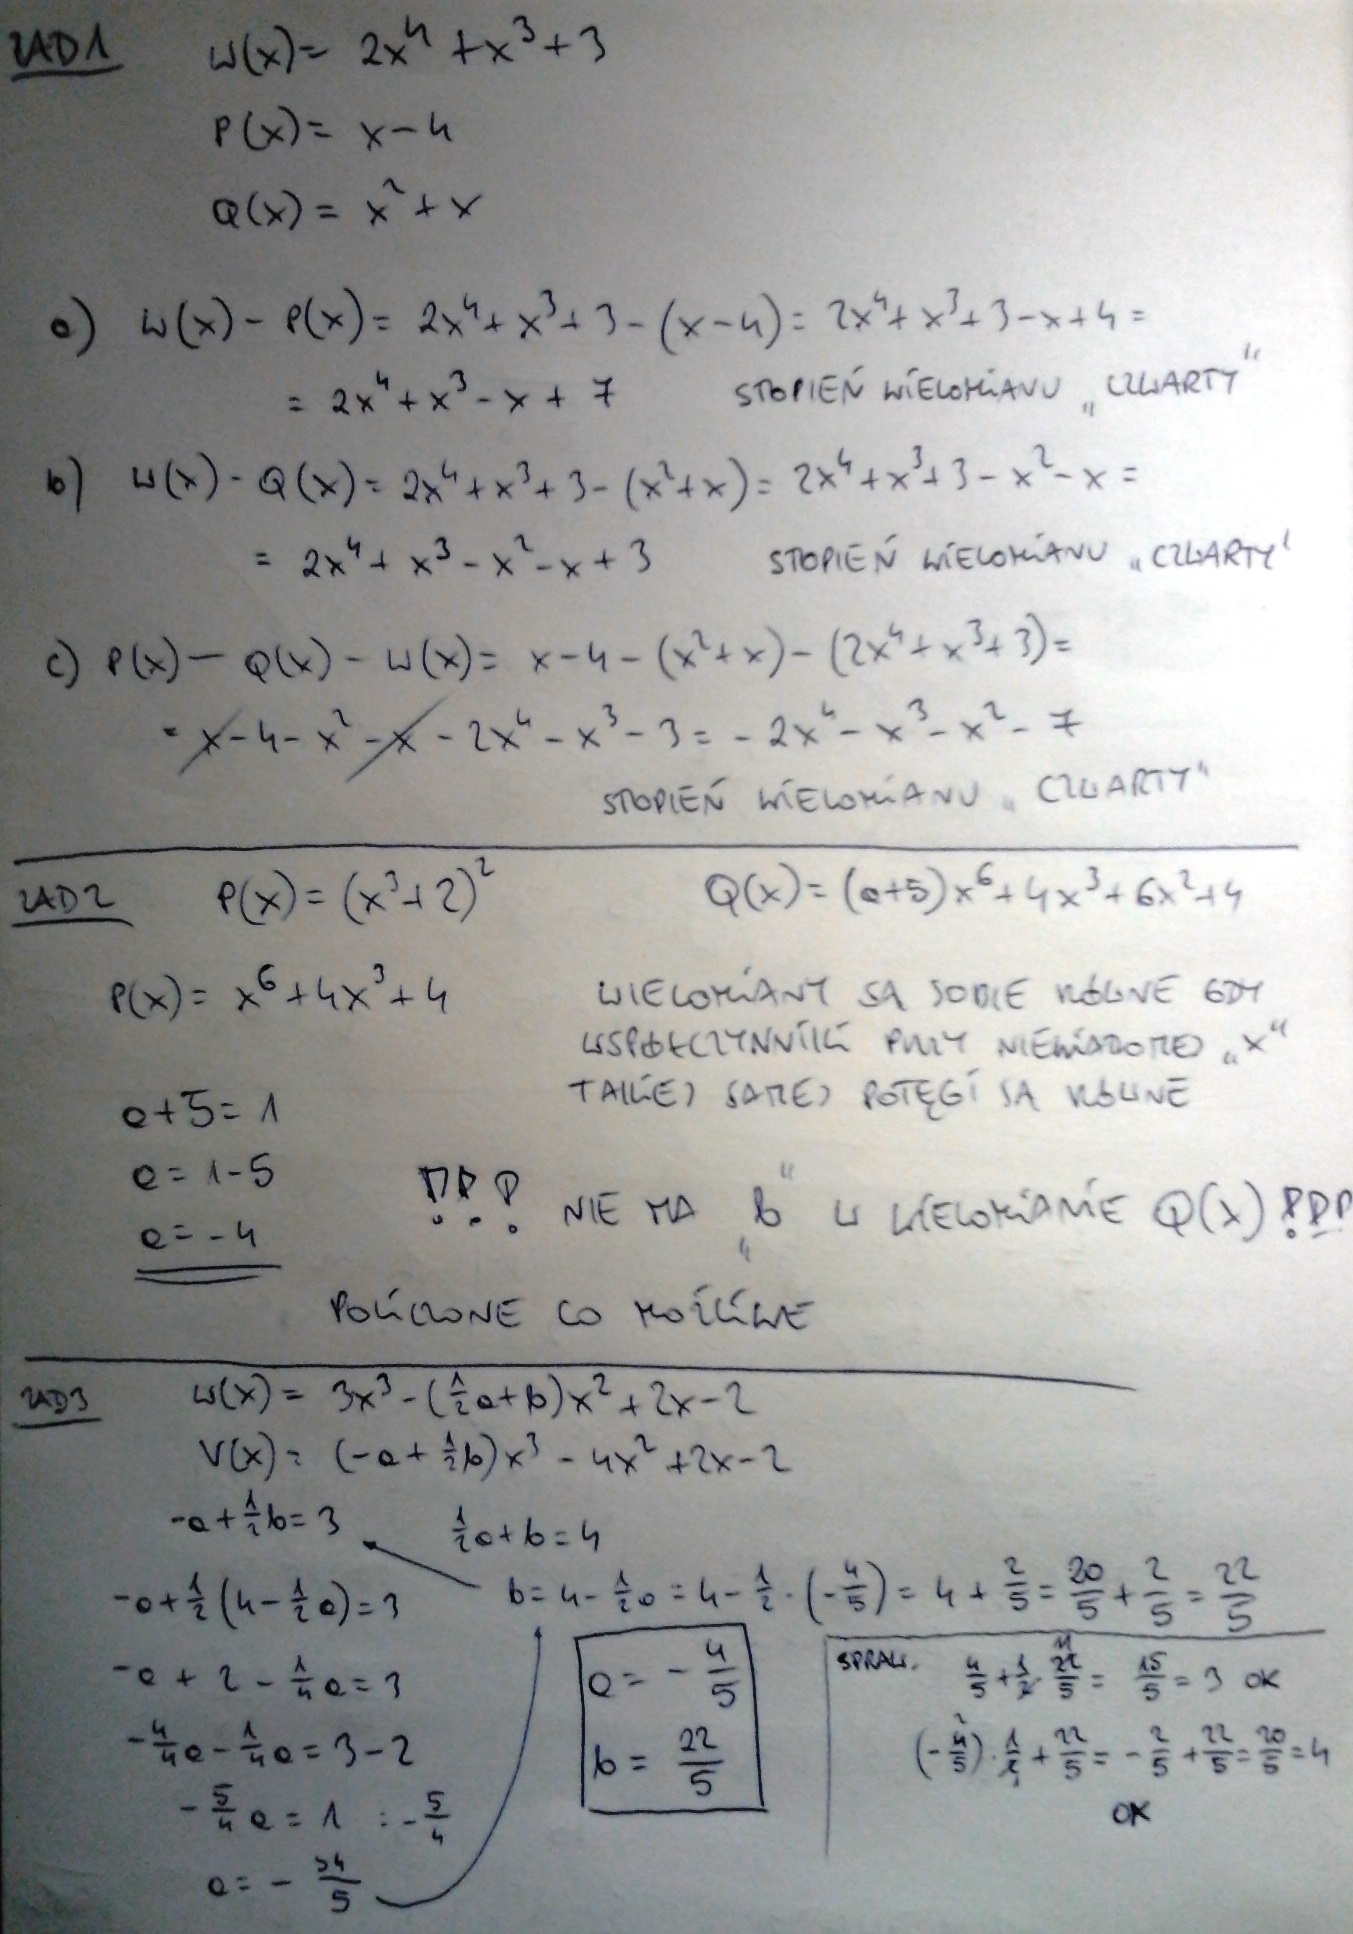 ZAD1 W(x) = 2x⁴ + x³ + 3
P(x) = x - 4
Q(x) = x² + x
a) W(x) - P(x) = 2x⁴ + x³ + 3 - (x - 4) = 2x⁴ + x³ + 3 - x + 4 =
= 2x⁴ + x³ - x + 7 STOPIEŃ WIELOMIANU „CZWARTY"
b) W(x) - Q(x) = 2x⁴ + x³ + 3 - (x² + x) = 2x⁴ + x³ + 3 - x² - x =
= 2x⁴ + x³ - x² - x + 3 STOPIEŃ WIELOMIANU „CZWARTY"
c) P(x) - Q(x) - W(x) = x - 4 - (x² + x) - (2x⁴ + x³ + 3) =
= x - 4 - x² - x - 2x⁴ - x³ - 3 = - 2x⁴ - x³ - x² - 7
STOPIEŃ WIELOMIANU „CZWARTY"
ZAD2 P(x) = (x³ + 2)² Q(x) = (a+5)x⁶ + 4x³ + 6x² + 4
P(x) = x⁶ + 4x³ + 4
WIELOMIANY SĄ SOBIE RÓWNE GDY
WSPÓŁCZYNNIKI PRZY NIEWIADOMEJ „x"
TAKIEJ SAMEJ POTĘGI SĄ RÓWNE
a+5 = 1
a = 1-5
a = -4
!!! NIE MA „b" W WIELOMIANIE Q(x) !!!
POLICZONE CO MOŻLIWE
ZAD3 W(x) = 3x³ - (1/2a + b)x² + 2x - 2
V(x) = (-a + 1/2b)x³ - 4x² + 2x - 2
-a + 1/2b = 3 1/2a + b = 4
-a + 1/2(4 - 1/2a) = 3 b = 4 - 1/2a = 4 - 1/2 · (-4/5) = 4 + 2/5 = 20/5 + 2/5 = 22/5
-a + 2 - 1/4a = 3
-4/4a - 1/4a = 3 - 2
-5/4a = 1 : -5/4
a = - 4/5
a = - 4/5
b = 22/5
SPRAW. 4/5 + 1/2 · 22/5 = 15/5 = 3 OK
(-4/5) · 1/2 + 22/5 = -2/5 + 22/5 = 20/5 = 4
OK